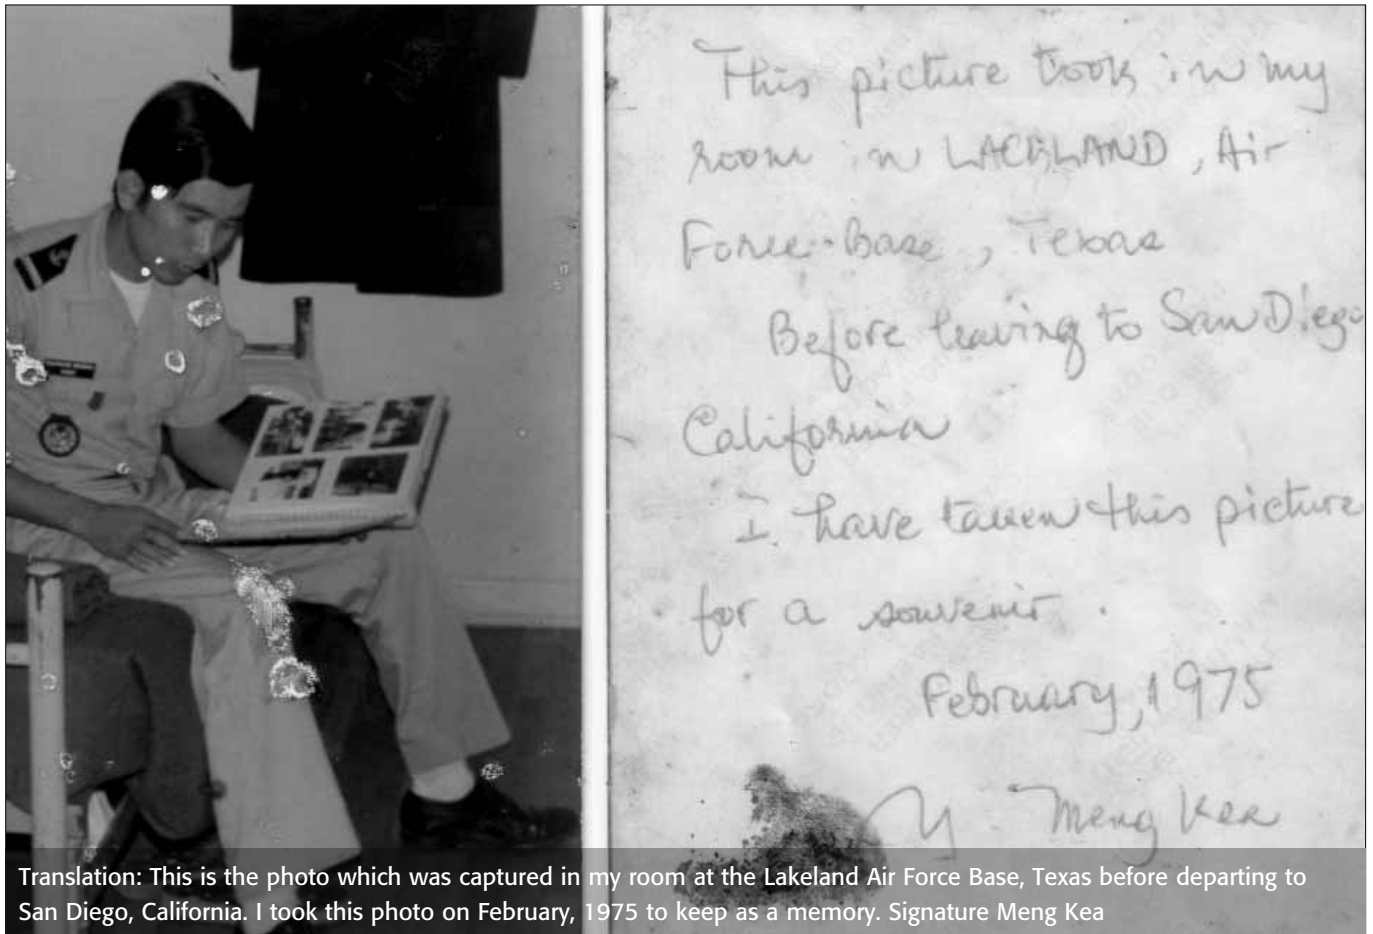 This picture took in my
room in LACKLAND, Air
Force-Base, Texas
Before leaving to San Diego
California
I. have taken this picture
for a souvenir.
February, 1975
Y. Meng Kea
Translation: This is the photo which was captured in my room at the Lakeland Air Force Base, Texas before departing to
San Diego, California. I took this photo on February, 1975 to keep as a memory. Signature Meng Kea